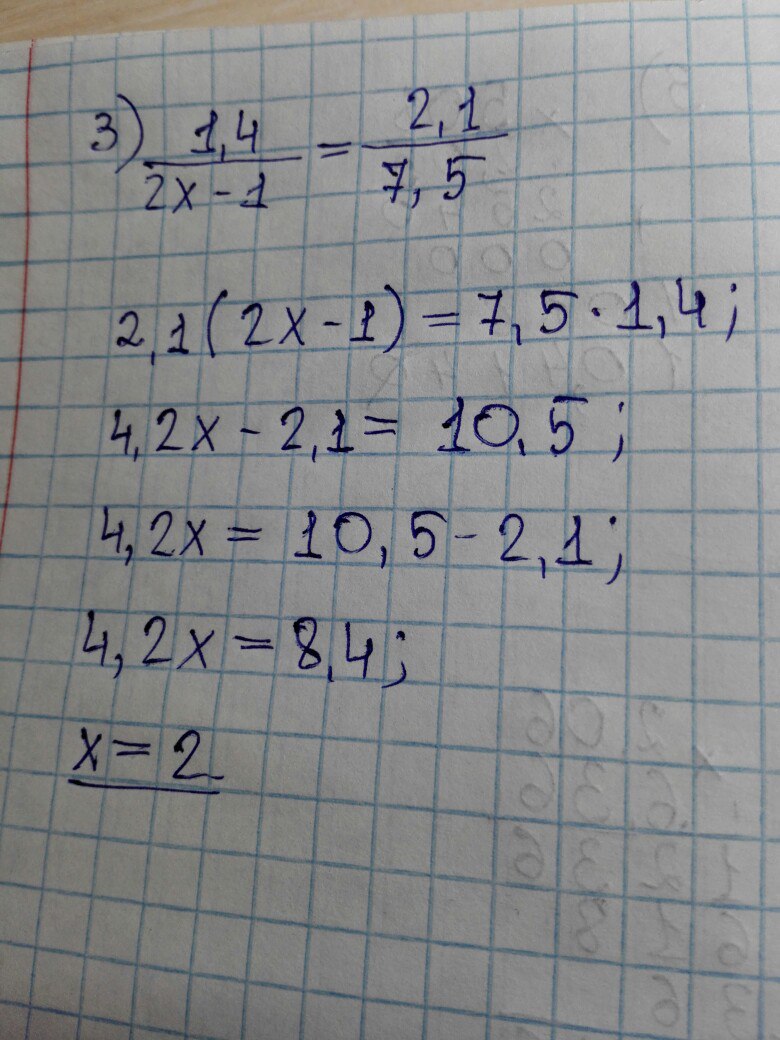 3) 1,4 / 2x-1 = 2,1 / 7,5
2,1(2x-1) = 7,5·1,4;
4,2x - 2,1 = 10,5;
4,2x = 10,5 - 2,1;
4,2x = 8,4;
x = 2